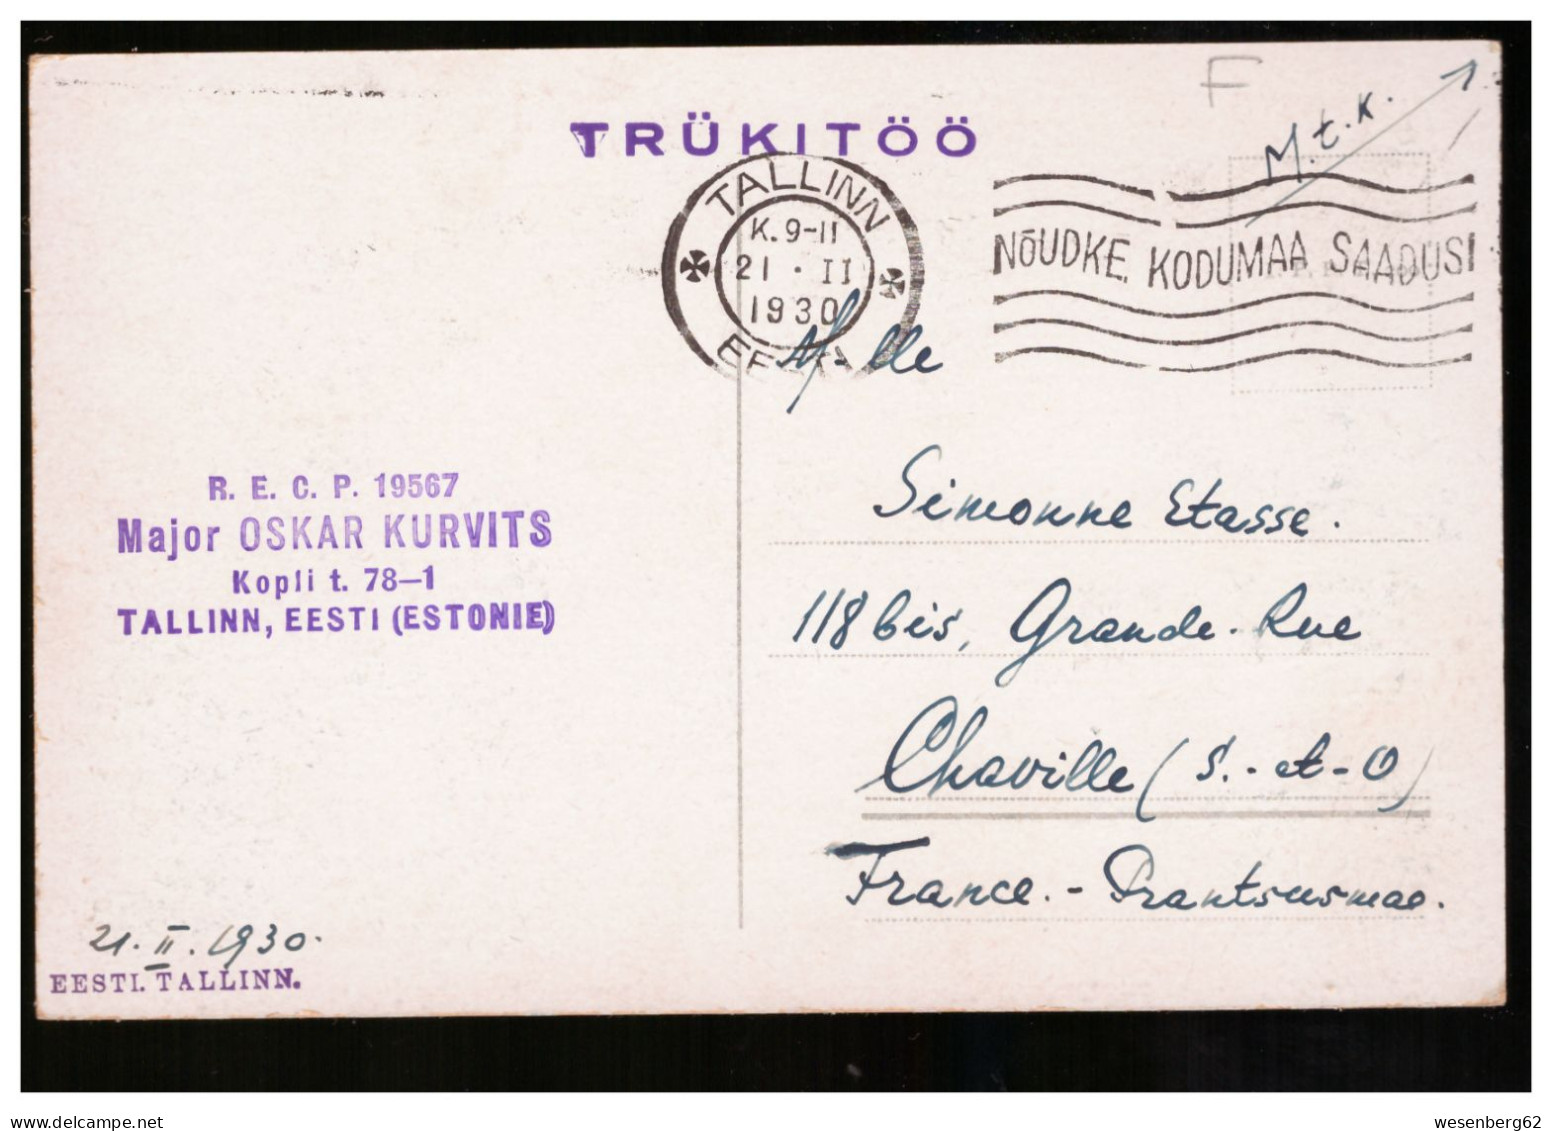 F
M.t.k.
TRÜKITÖÖ
TALLINN
K. 9-11
21 · II
1930
EESTI
NÕUDKE KODUMAA SAADUSI
M-lle
Simonne Etasse.
118 bis, Grande. Rue
Chaville (S.-et-O)
France. - Prantsusmaa.
R. E. C. P. 19567
Major OSKAR KURVITS
Kopli t. 78—1
TALLINN, EESTI (ESTONIE)
21. II. 1930.
EESTI. TALLINN.
wesenberg62